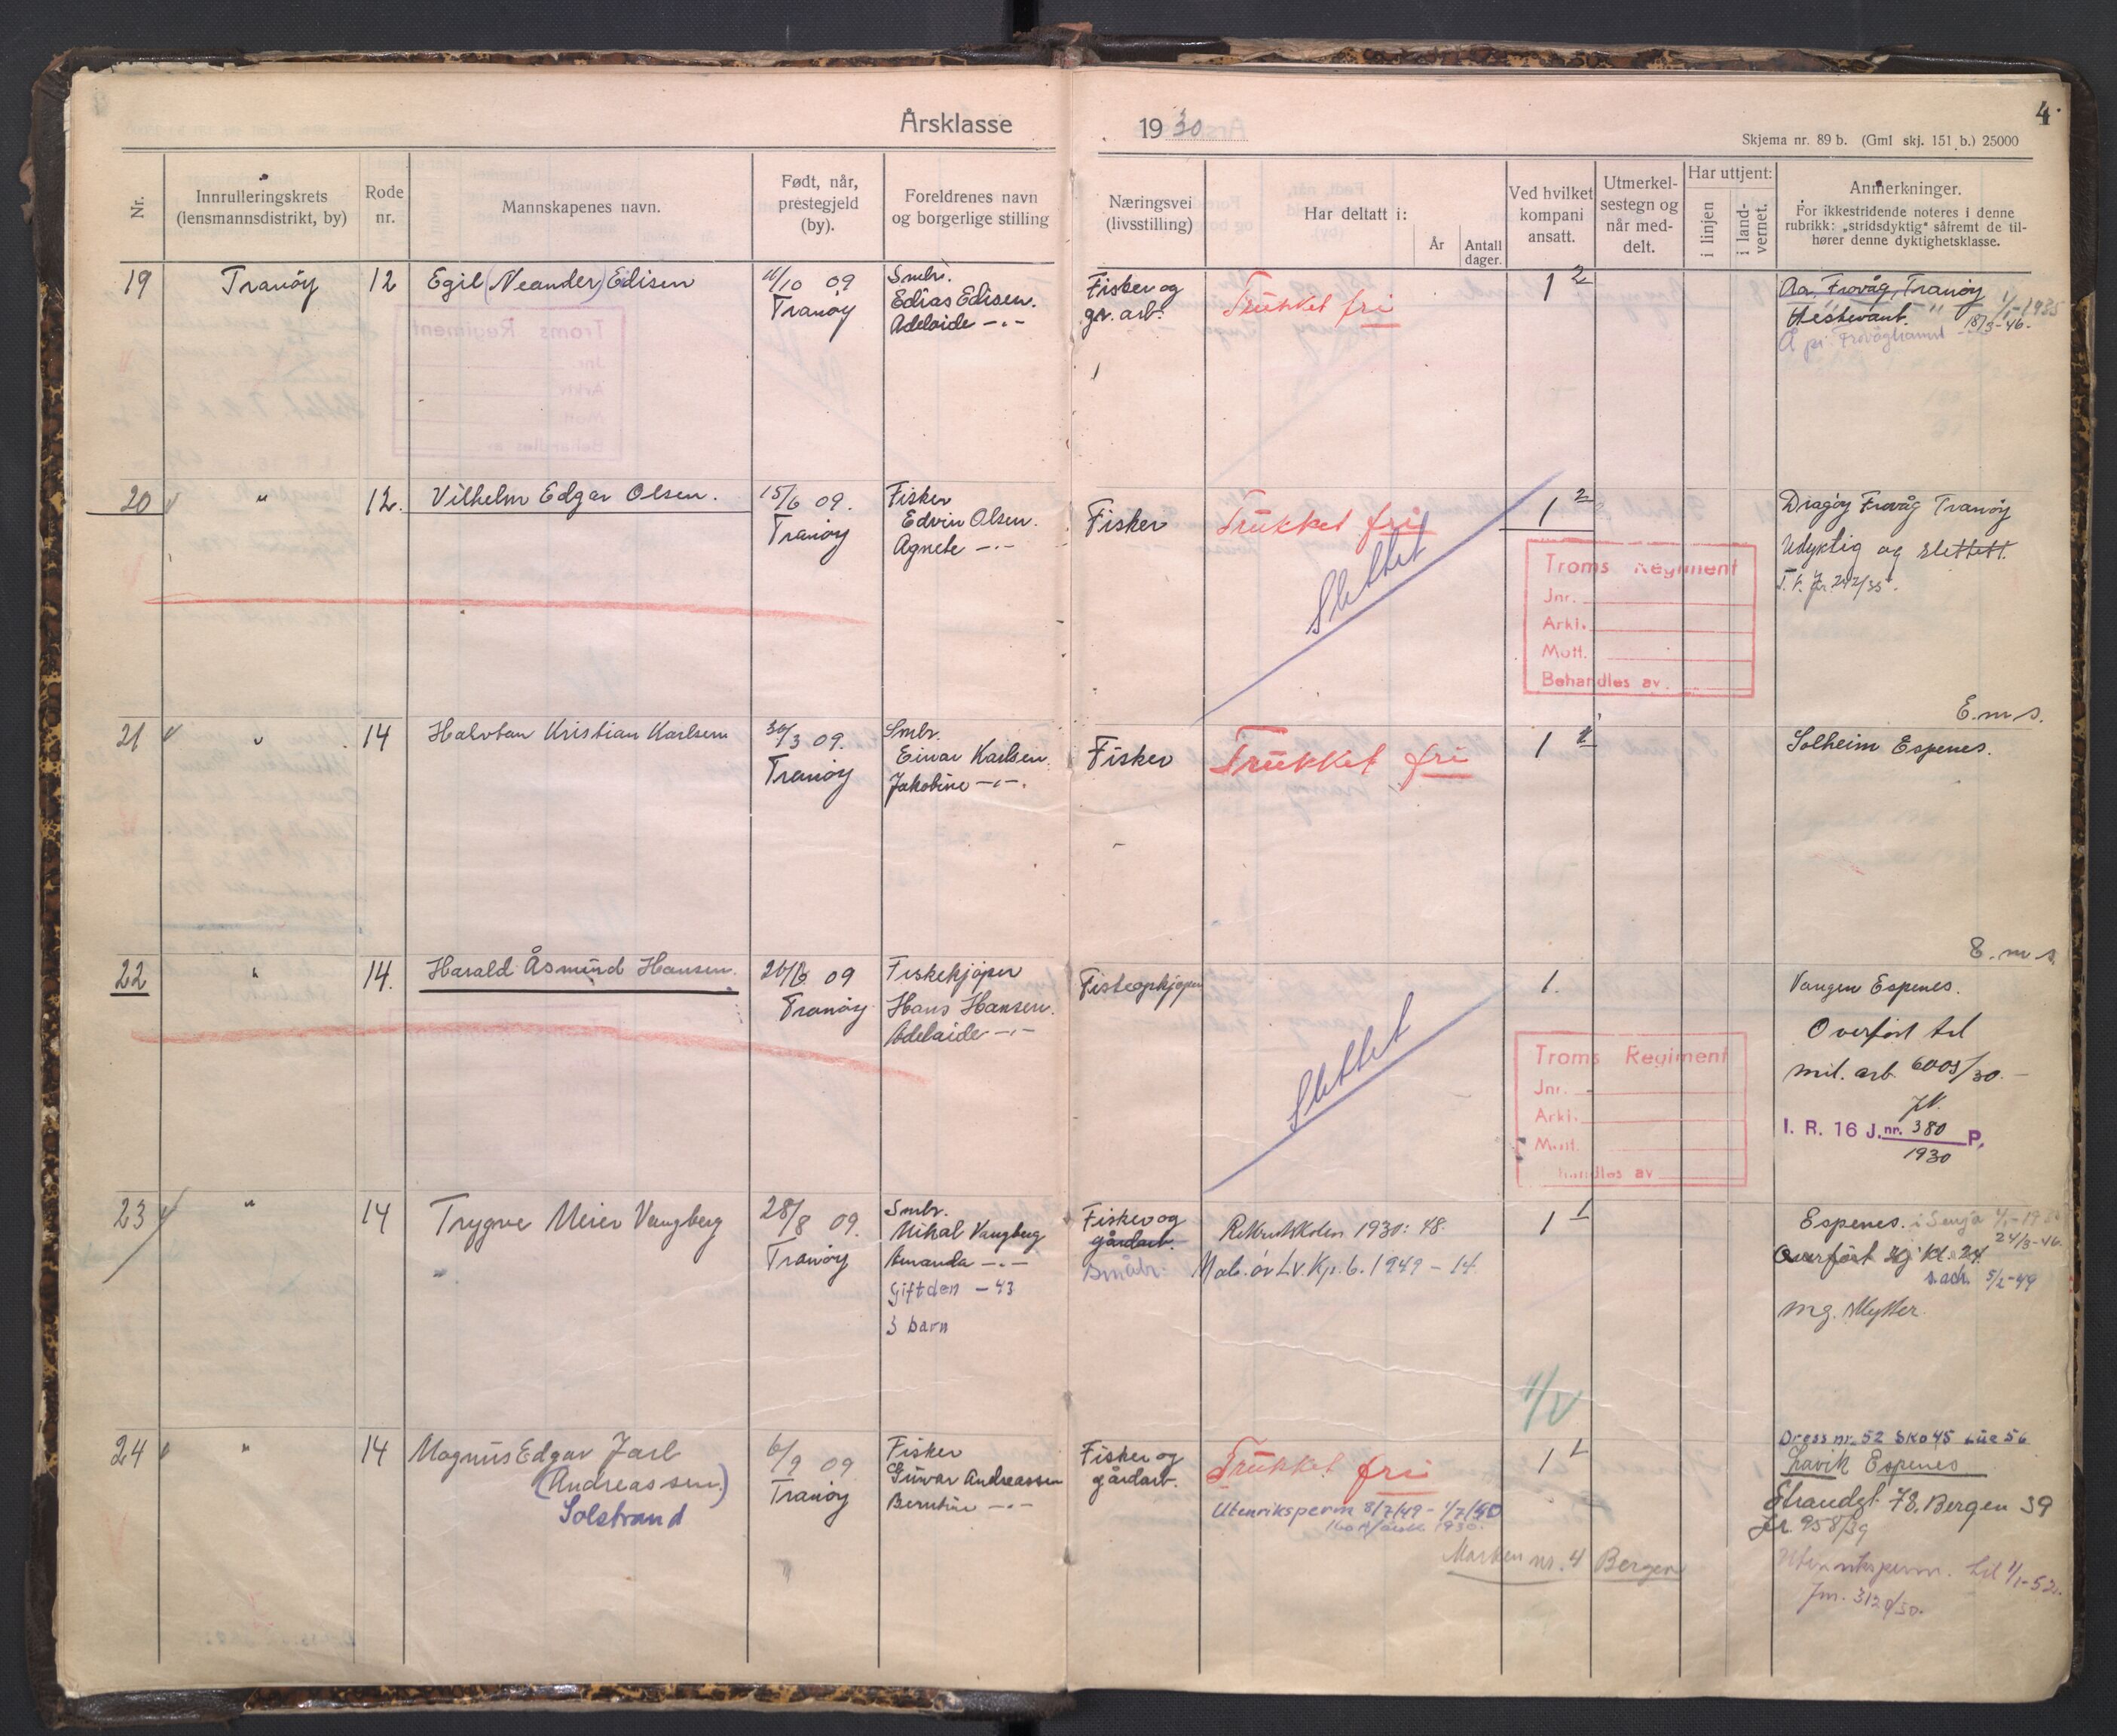 Årsklasse 1930
4.
Skjema nr. 89 b. (Gml skj. 151 b.) 25000
Nr.
Innrulleringskrets
(lensmannsdistrikt, by)
Rode
nr.
Mannskapenes navn.
Født, når,
prestegjeld
(by).
Foreldrenes navn
og borgerlige stilling
Næringsvei
(livsstilling)
Har deltatt i:
År
Antall
dager.
Ved hvilket
kompani
ansatt.
Utmerkel-
sestegn og
når med-
delt.
Har uttjent:
i linjen
i land-
vernet.
Anmerkninger.
For ikkestridende noteres i denne
rubrikk: „stridsdyktig“ såfremt de til-
hører denne dyktighetsklasse.
19
Tranöy
12
Egil (Neander) Edisen
11/10 09
Tranöy
Smbr.
Edias Edisen.
Adelaide -"-
Fisker og
gr. arb.
Trukket fri
1 2
Aa, Frovåg, Tranöy
1/1-1935
18/3-46.
20
"
12.
Vilhelm Edgar Olsen.
15/6 09.
Tranöy
Fisker
Edvin Olsen.
Agnete -"-
Fisker
Trukket fri
Slettet
1 2
Troms Regiment
Jnr.
Arki.
Mott.
Behandles av
Dragöy Frovåg Tranöy
Udyktig og slettet.
21
"
14
Halvdan Kristian Karlsen
30/3 09.
Tranöy
Smbr.
Einar Karlsen.
Jakobine -"-
Fisker
Trukket fri
1
E.m.s.
Solheim Espenes.
22
"
14.
Harald Åsmund Hansen.
Tranöy
Fiskekjöper
Hans Hansen.
Adelaide -"-
Fiskeopkjöper
Slettet
1.
Troms Regiment
Jnr.
Arki.
Mott.
E.m.s.
Vangen Espenes.
Overfört til
mil. arb. 6005/30.
I. R. 16 J.nr. 380 P.
1930
23
"
14
Trygve Meier Vangberg
28/8 09.
Tranöy
Smbr.
Mikal Vangberg
Amanda -"-
Gift den -43
3 barn
Fisker og
gårdarb.
Småbr.
Rekruttskolen 1930: 48.
Mob. öv Lv. Kp. 6. 1949 - 14
1 1
Espenes. i Senja
24/3-46.
Overfört
5/2-49
mg. skytter.
24
"
14
Magnus Edgar Jarl
(Andreassen)
Solstrand
6/9 09
Tranöy
Fisker
Gunnar Andreassen
Berntine -"-
Fisker og
gårdarb.
Trukket fri
Utenriksperm 8/7/49 - 1/7/50
Marken nr. 4 Bergen
1 1
Dress nr. 52 Sko 45 Lue 56
Lavik Espenes
Strandgt 78. Bergen 39
Jr. 958/39
Utenriksperm. til 1/1-52.
Jnr. 3120/50.